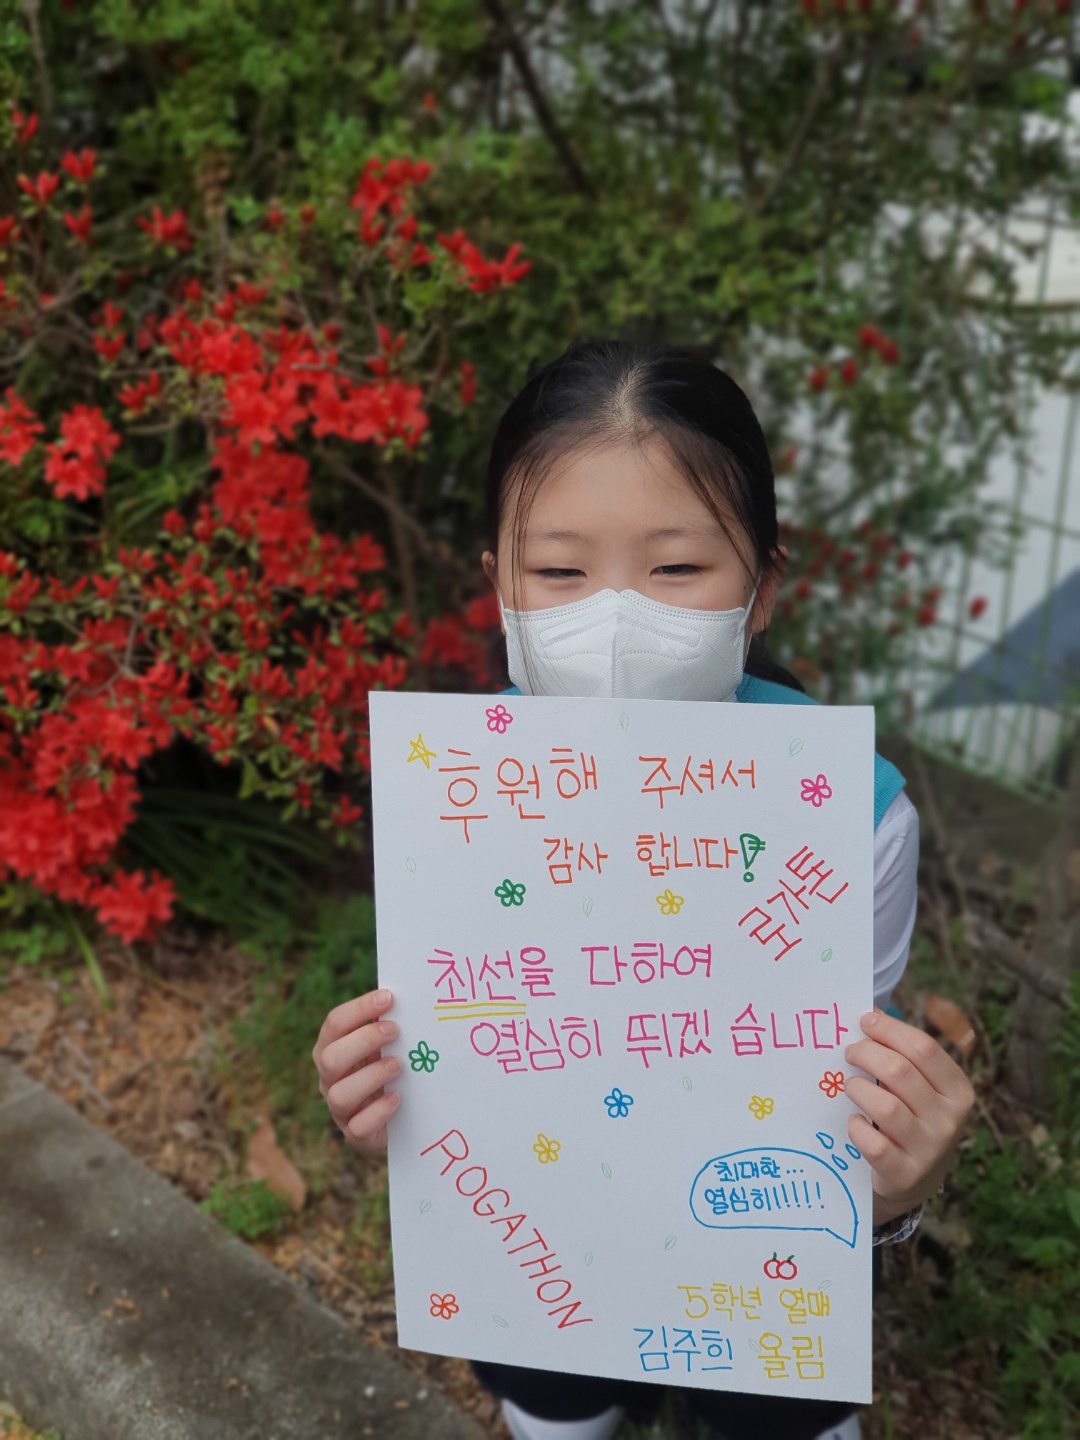 후원해 주셔서
감사 합니다!
로가톤
최선을 다하여
열심히 뛰겠 습니다
ROGATHON
최대한...
열심히!!!!!
5학년 열매
김주희 올림